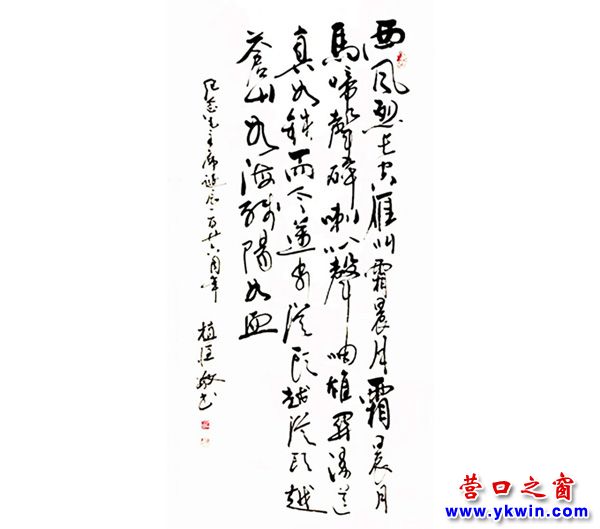 西风烈长空雁叫霜晨月霜晨月
馬啼聲碎喇叭聲咽雄関漫道
真如鉄而今邁步從头越從头越
蒼山如海残陽如血
纪念毛主席诞辰一百廿六周年
营口之窗
www.ykwin.com